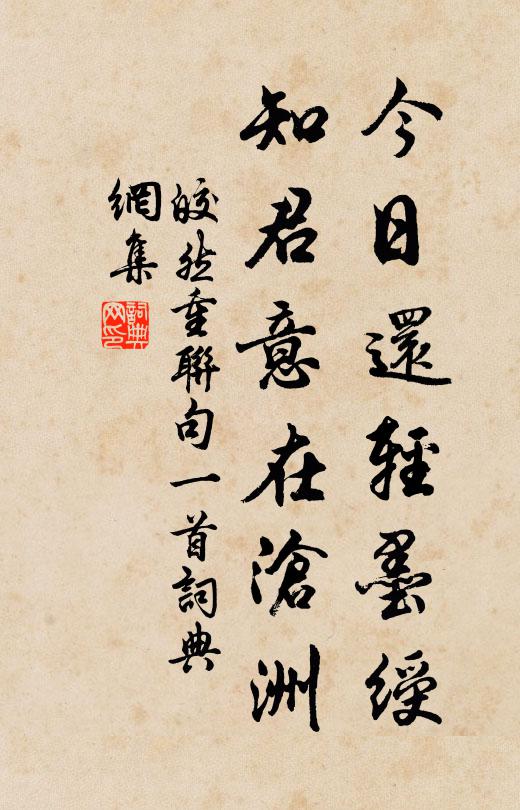 今日還輕墨綬
知君意在滄洲
皎然重聯句一首詞典
網集
詞典
网印